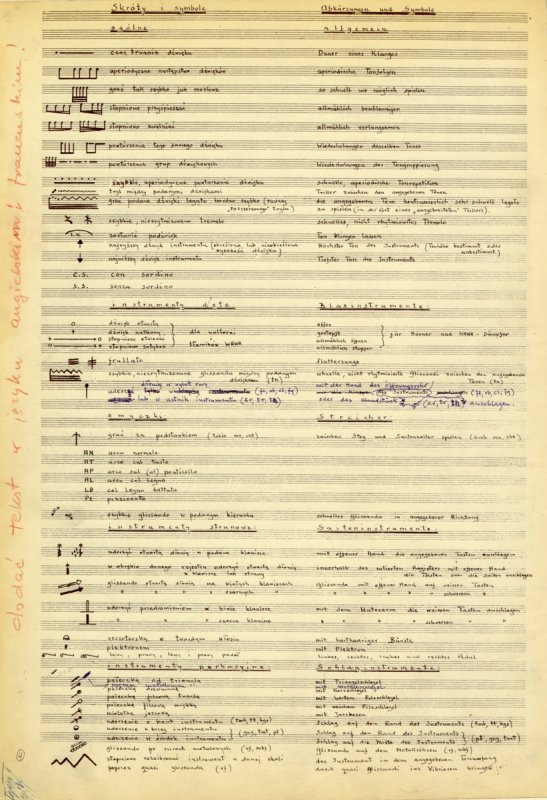 Skróty i symbole
Abkürzungen und Symbole
ogólne
allgemein
czas trwania dźwięku
Dauer eines Klanges
aperiodyczne następstwo dźwięków
aperiodische Tonfolgen
grać tak szybko jak możliwe
so schnell wie möglich spielen
stopniowo przyspieszać
allmählich beschleunigen
stopniowo zwalniać
allmählich verlangsamen
powtórzenia tego samego dźwięku
Wiederholungen desselben Tones
powtórzenia grup dźwiękowych
Wiederholungen der Tongruppierung
szybkie, aperiodyczne powtarzanie dźwięku
schnelle, aperiodische Tonrepetition
tryl między podanymi dźwiękami
Triller zwischen den angegebenen Tönen
grać podane dźwięki legato bardzo szybko (rodzaj
die angegebenen Töne sehr schnell legato
zu spielen (in der Art eines Trillers)
szybkie, nierytmizowane tremolo
schnelles, nicht rhythmisiertes Tremolo
l.v.
zostawić pudźwięk
Ton klingen lassen
najwyższy dźwięk instrumentu
Höchster Ton des Instruments (Tonhöhe bestimmt oder
unbestimmt)
najniższy dźwięk instrumentu
Tiefster Ton des Instruments
c.s. con sordino
s.s. senza sordino
instrumenty dęte
Blasinstrumente
dźwięk otwarty
offen
dźwięk zatkany
gestopft
stopniowo otwierać
allmählich öffnen
stopniowo zatykać
allmählich stopfen
dla waltorni
i tłumików WAWA
für Hörner und WAWA-Dämpfer
frullato
Flatterzunge
szybkie nierytmizowane glissando między podanymi
dźwiękami
schnelle, nicht rhythmisierte Glissandi zwischen den angegebenen
Tönen
mit der Hand das
smyczki
Streicher
grać za podstawkiem
zwischen Steg und Saitenhalter spielen
AN arco normale
AT arco sul tasto
AP arco sul (al) ponticello
AL arco col legno
LB col legno battuto
PZ pizzicato
szybkie glissando w podanym kierunku
schnelles Glissando in angegebener Richtung
instrumenty strunowe:
Saiteninstrumente
uderzyć otwartą dłonią w podane klawisze
mit offener Hand die angegebenen Tasten anschlagen
w obrębie danego rejestru uderzyć otwartą dłonią
w klawisze lub struny
innerhalb des notierten Registers mit offener Hand
die Tasten oder die Saiten anschlagen
glissando otwartą dłonią na białych klawiszach
" " " " czarnych "
Glissando mit offener Hand auf weißen Tasten
" " " " schwarzen "
uderzyć przedramieniem w białe klawisze
" " " czarne klawisze
mit dem Unterarm die weissen Tasten anschlagen
" " " " schwarzen "
szczoteczką o twardym włosiu
mit harthaariger Bürste
plektronem
mit Plektrum
lewy, prawy, lewy i prawy pedał
linkes, rechtes, linkes und rechtes Pedal
instrumenty perkusyjne:
Schlaginstrumente:
pałeczką od triangla
mit Triangelschlegel
pałeczką drewnianą
mit Holzschlegel
pałeczką filcową twardą
mit hartem Filzschlegel
pałeczką filcową miękką
mit weichem Filzschlegel
miotełką jazzową
mit Jazzbesen
uderzenie w kant instrumentu
Schlag auf den Rand des Instruments
uderzenie w brzeg instrumentu
Schlag auf den Rand des Instruments
uderzenie w środek instrumentu
Schlag auf die Mitte des Instruments
glissando po rurach metalowych
Glissando auf den Metallröhren
stopniowo rozwibrować instrument w danej skali
das Instrument in dem angegebenen Tonumfang
poprzez quasi glissando
durch quasi Glissandi ins Vibrieren bringen
dodać tekst w języku angielskim i francuskim!